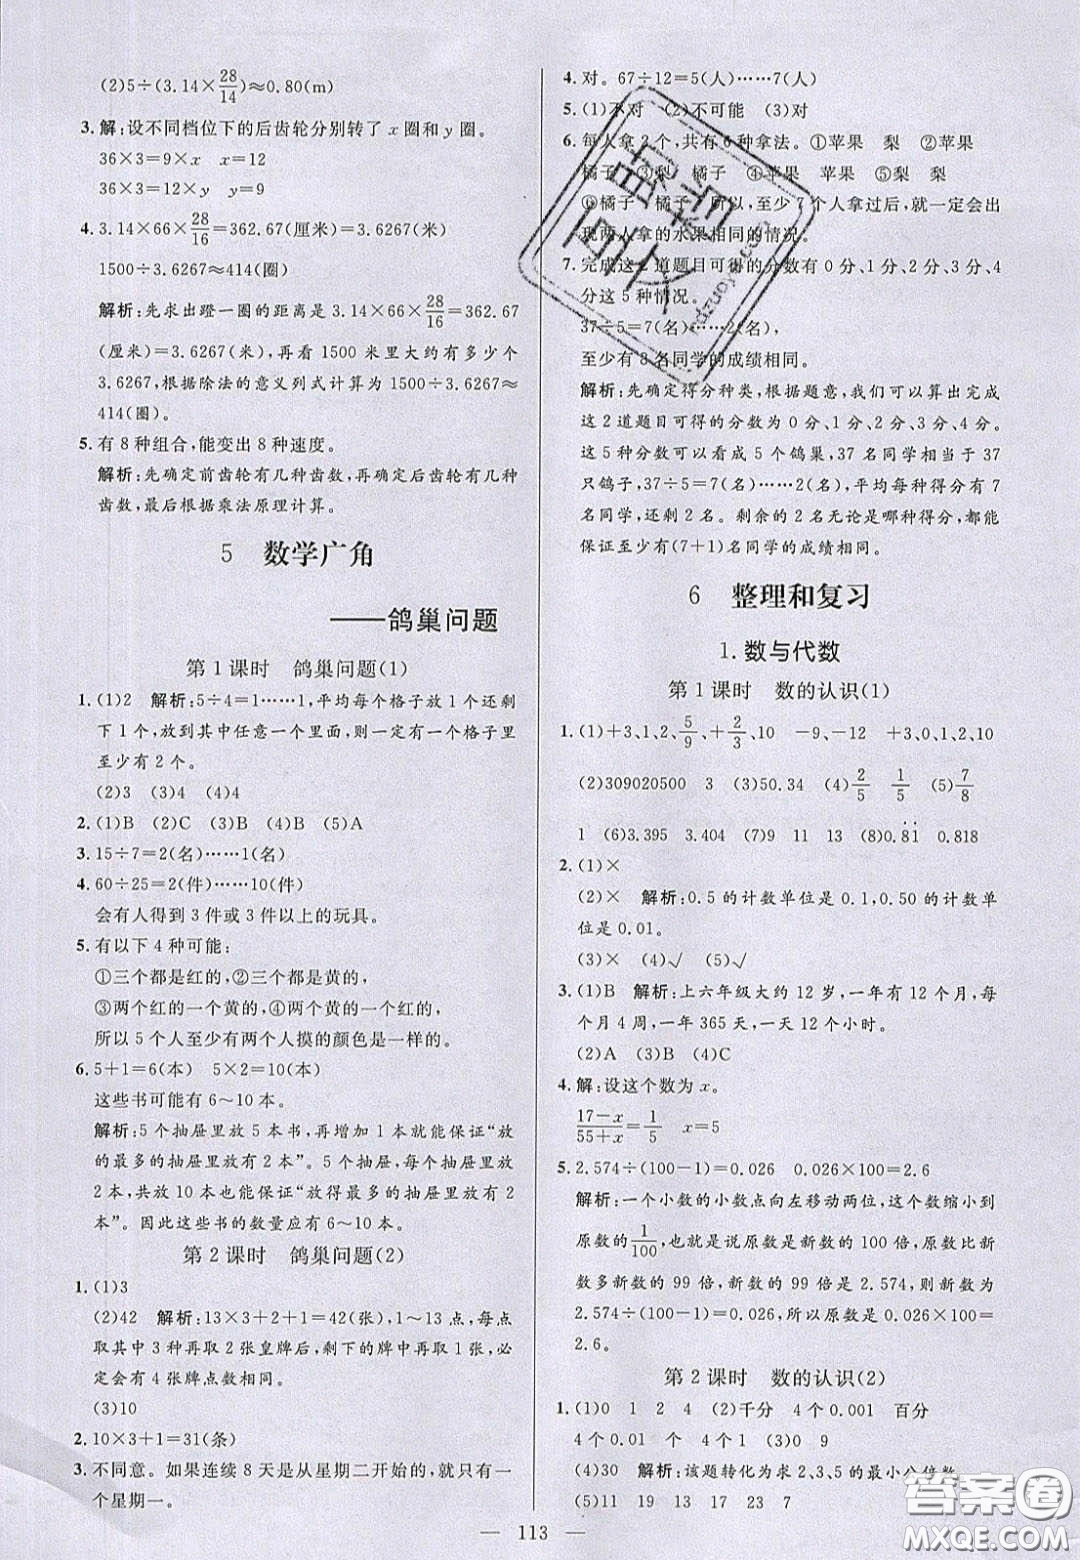 (2)5÷(3.14×28/14)≈0.80(m)
3.解:设不同档位下的后齿轮分别转了x圈和y圈。
36×3=9×x x=12
36×3=12×y y=9
4.3.14×66×28/16=362.67(厘米)=3.6267(米)
1500÷3.6267≈414(圈)
解析:先求出蹬一圈的距离是3.14×66×28/16=362.67
(厘米)=3.6267(米),再看1500米里大约有多少个
3.6267,根据除法的意义列式计算为1500÷3.6267≈
414(圈)。
5.有8种组合,能变出8种速度。
解析:先确定前齿轮有几种齿数,再确定后齿轮有几种
齿数,最后根据乘法原理计算。
5 数学广角
——鸽巢问题
第1课时 鸽巢问题(1)
1.(1)2 解析:5÷4=1……1,平均每个格子放1个还剩
下1个,放到其中任意一个里面,则有一个格子里
至少有2个。
(2)3 (3)4 (4)4
2.(1)B (2)C (3)B (4)B (5)A
3.15÷7=2(名)……1(名)
4.60÷25=2(件)……10(件)
会有人得到3件或3件以上的玩具。
5.有以下4种可能:
①三个都是红的,②三个都是黄的,
③两个红的一个黄的,④两个黄的一个红的,
所以5个人至少有两个人摸的颜色是一样的。
6.5+1=6(本) 5×2=10(本)
这些书可能有6~10本。
解析:5个抽屉里放5本书,再增加1本就能保证“放
的最多的抽屉里放有2本”。5个抽屉,每个抽屉里放
2本,共放10本也能保证“放得最多的抽屉里放有2
本”。因此这些书的数量应有6~10本。
第2课时 鸽巢问题(2)
1.(1)3
(2)42 解析:13×3+2+1=42(张),1~13点,每点
取其中3种再取2张皇牌后,剩下的牌中再取1张,必
定会有4张牌点数相同。
(3)10
2.10×3+1=31(条)
3.不同意。如果连续8天是从星期二开始的,就只有一
个星期一。
4.对。67÷12=5(人)……7(人)
5.(1)不对 (2)不可能 (3)对
6.每人拿2个,共有6种拿法。①苹果 梨 ②苹果
橘子 ③梨 橘子 ④苹果 苹果 ⑤梨 梨
⑥橘子 橘子 所以,至少7个人拿过后,就一定会出
现两人拿的水果相同的情况。
7.完成这2道题目可得的分数有0分、1分、2分、3分、4
分这5种情况。
37÷5=7(名)……2(名),
至少有8名同学的成绩相同。
解析:先确定得分种类,根据题意,我们可以算出完成
这2道题目可得的分数为0分、1分、2分、3分、4分。
这5种分数可以看成5个鸽巢,37名同学相当于37
只鸽子,37÷5=7(名)……2(名),平均每种得分有7
名同学,还剩2名。剩余的2名无论是哪种得分,都能
保证至少有(7+1)名同学的成绩相同。
6 整理和复习
1.数与代数
第1课时 数的认识(1)
1.(1)+3、1、2、5/9、+2/3、10 -9、-12 +3、0、1、2、10
(2)309020500 3 (3)50.34 (4)2/5 1/5 (5)7/8
1 (6)3.395 3.404 (7)9 11 13 (8)0.8̇1̇ 0.818
2.(1)×
(2)× 解析:0.5的计数单位是0.1,0.50的计数单
位是0.01。
(3)× (4)√ (5)√
3.(1)B 解析:上六年级大约12岁,一年有12个月,每
个月4周,一年365天,一天12个小时。
(2)A (3)D (4)C
4.解:设这个数为x。
17-x/55+x=1/5 x=5
5.2.574÷(100-1)=0.026 0.026×100=2.6
解析:一个小数的小数点向左移动两位,这个数缩小到
原数的1/100,也就是说原数是新数的100倍,原数比新
数多新数的99倍,新数的99倍是2.574,则新数是
2.574÷(100-1)=0.026,所以原数是0.026×100=
2.6。
第2课时 数的认识(2)
1.(1)0 1 2 4 (2)千分 4个0.001 百分
4个0.01 一 4个1 (3)0 9
(4)30 解析:该题转化为求2、3、5的最小公倍数。
(5)11 19 13 17 23 7
113
答案圈
MXQE.COM